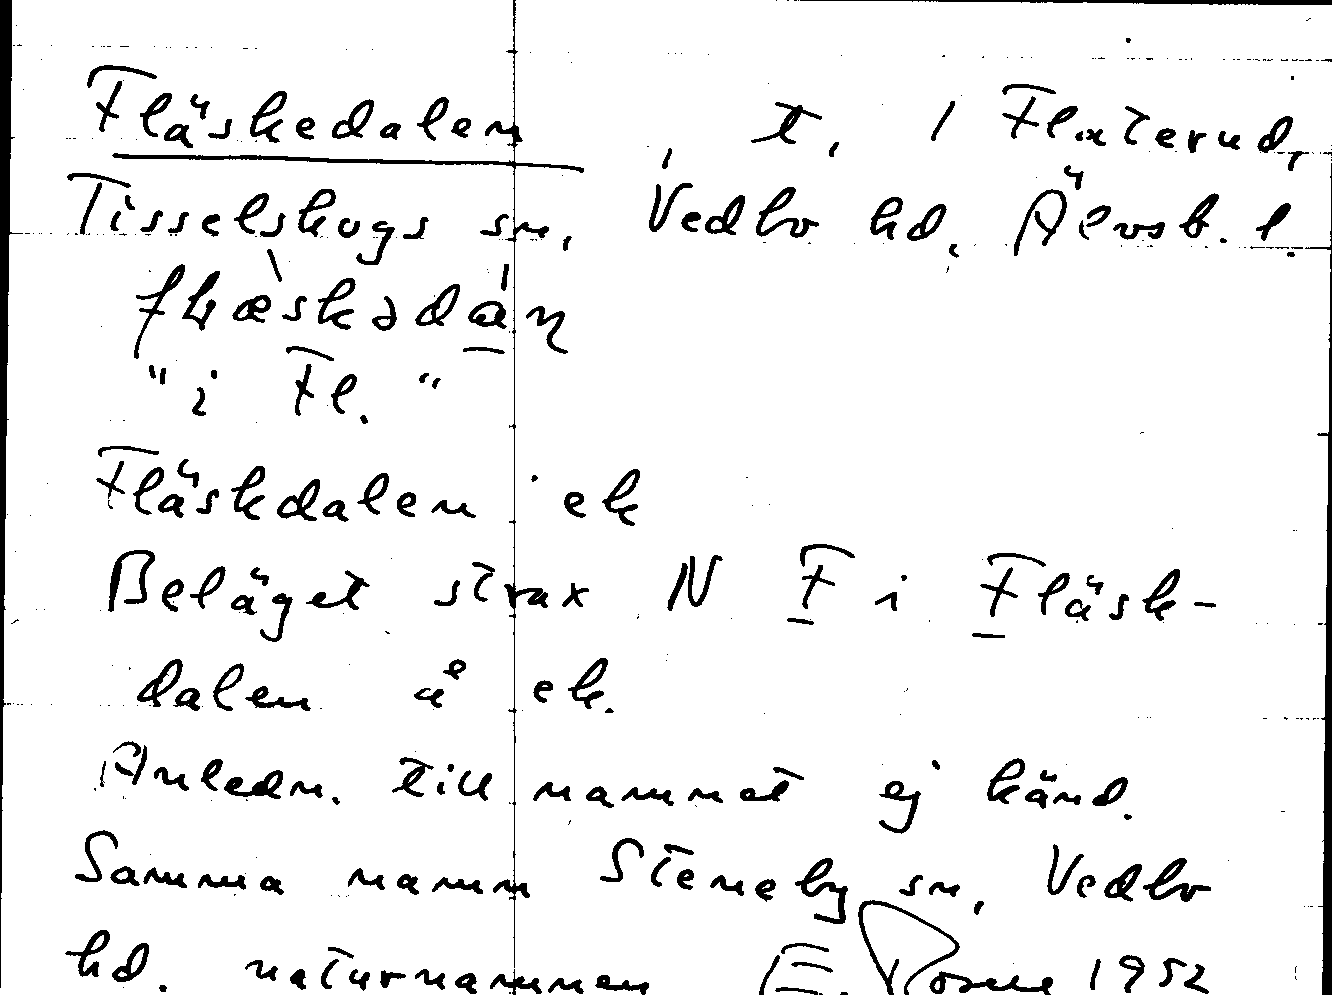 Fläskedalen, t. i Flaterud,
Tisselskogs sn, Vedbo hd. Älvsb. l.
"i Fl."
Fläskdalen ek
Beläget strax N F i Fläsk-
dalen å ek.
Anledn. till namnet ej känd.
Samma namn Steneby sn, Vedbo
hd. naturnamnen E. 1952